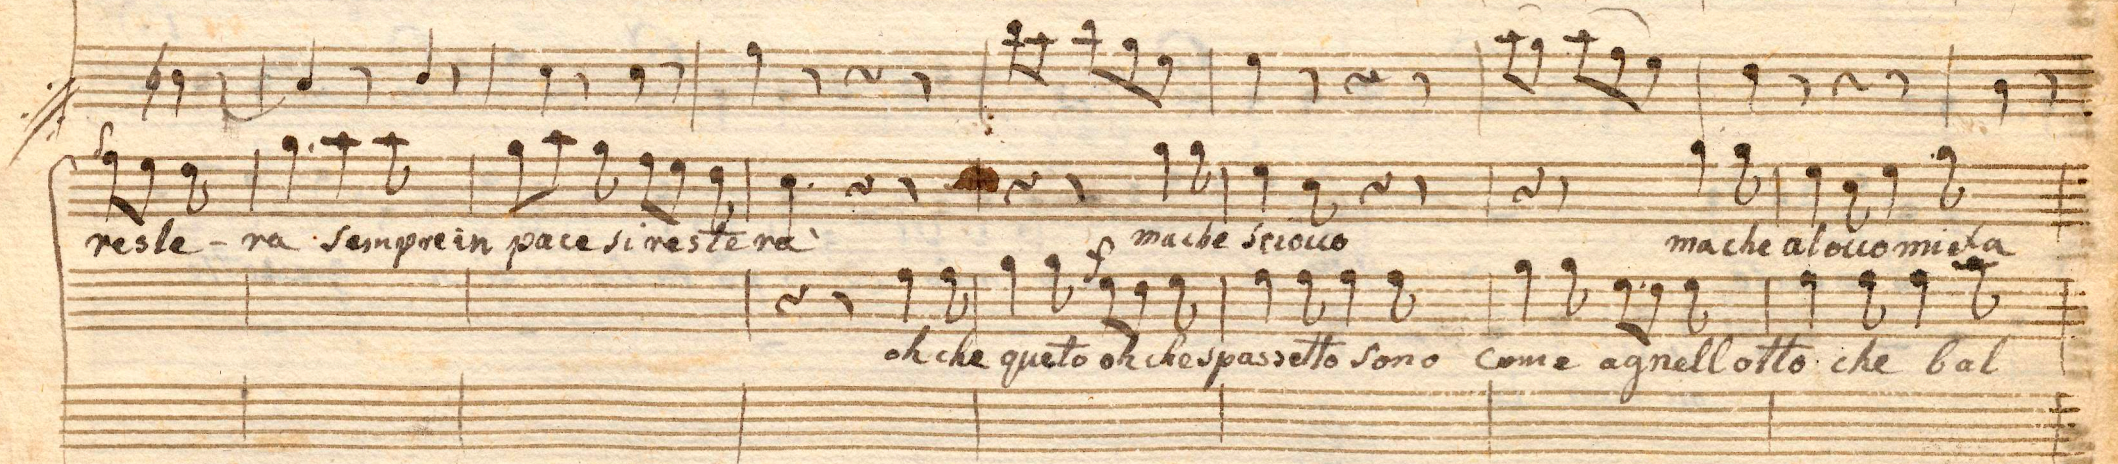 reste-ra sempre in pace si restera' ma che sciocco ma che alocco mi fa
oh che gusto oh che spassetto sono come agnellotto che bal